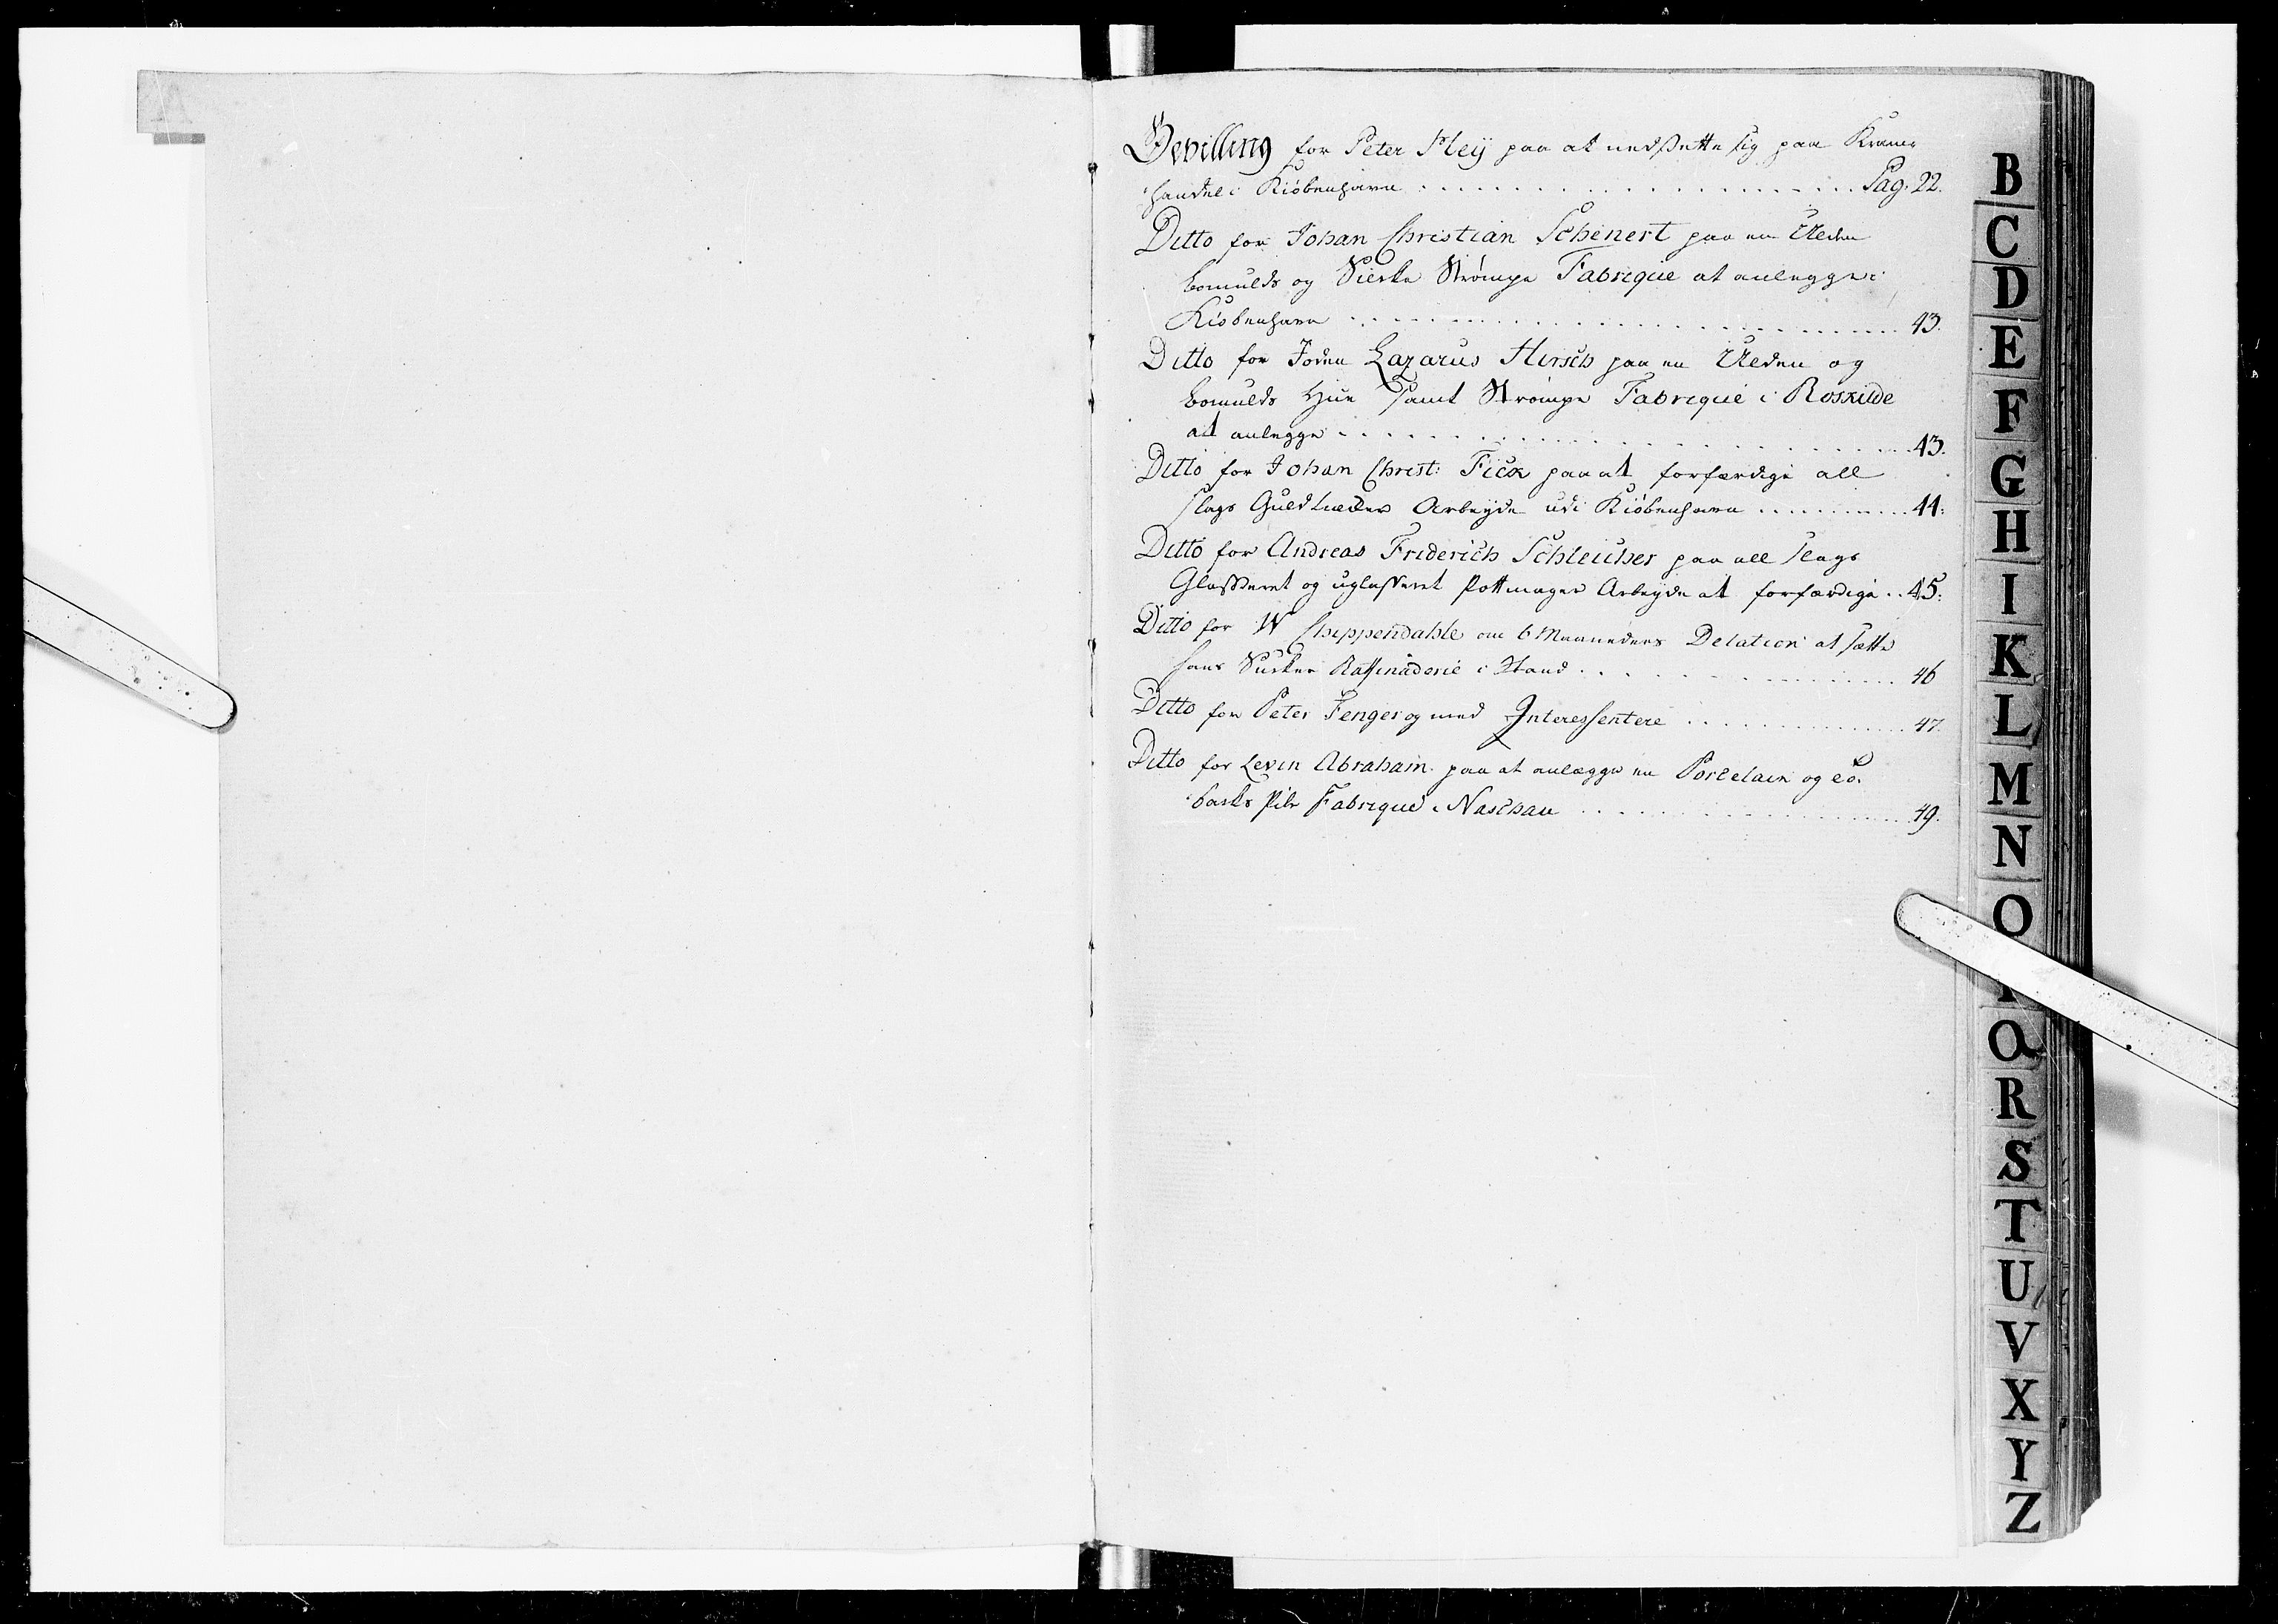 Bevilling for Peter Pleÿ paa at nedsætte sig paa Kramer
handel i Kiöbenhavn . . . . . . Pag. 22.
Ditto for Johan Christian Schenert paa en Ulden
bomulds og Silke Strömpe Fabriqve at anlegge i
Kiöbenhavn . . . . . . 43.
Ditto for Joden Lazarus Hirsch paa en Ulden og
bomulds Hue samt Strömpe Fabriqve i Roskilde
at anlegge . . . . . . 43.
Ditto for Johan Christ: Fick paa at forfærdige all
slags Guldlæder Arbeyde udi Kiöbenhavn . . . . . . 44:
Ditto for Andreas Friderich Schleicher paa all slags
Glasseret og uglasseret Pottmager Arbeyde at forfærdige . . 45:
Ditto for W Chippendahle om 6 Maaneders Delation at sætte
hans Sucker Raffinaderie i Stand . . . . . . 46
Ditto for Peter Fenger og med Interessentere . . . . . . 47.
Ditto for Levin Abraham paa at anlægge en Porcelain og to-
baks Pibe Fabriqve i Naschau . . . . . . 49.
B
C
D
E
F
G
H
I
K
L
M
N
O
Q
R
S
T
U
V
X
Y
Z